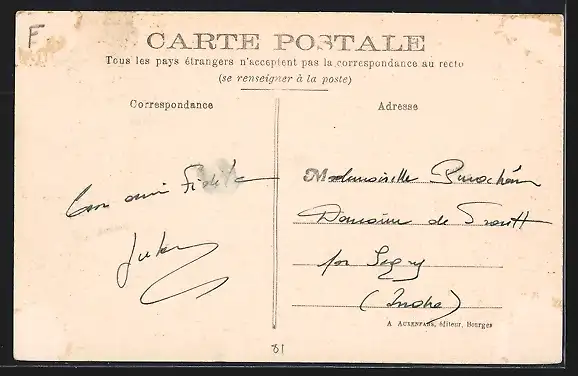 F
CARTE POSTALE
Tous les pays étrangers n'acceptent pas la correspondance au recto
(se renseigner à la poste)
Correspondance
Adresse
ami Fidèle
Mademoiselle
Domaine de
par Segry
(Indre)
A AUXENFANS, éditeur, Bourges
81